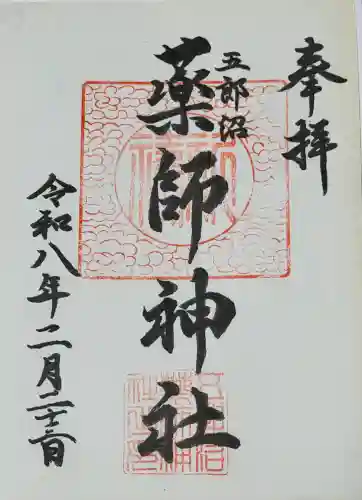 奉拝
五郎沼
薬師神社
令和八年二月二十三日